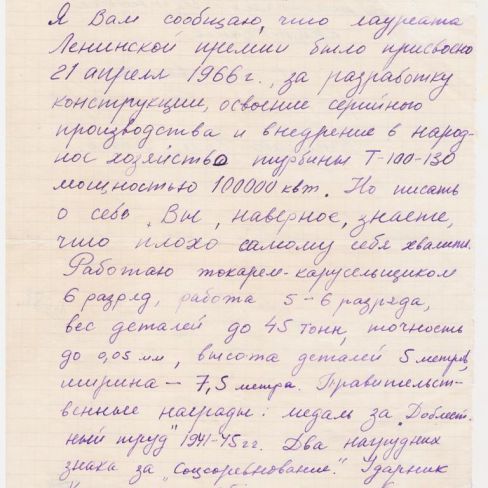 Я Вам сообщаю, что лауреата
Ленинской премии было присвоено
21 апреля 1966 г., за разработку
конструкции, освоение серийного
производства и внедрение в народ-
ное хозяйство турбины Т-100-130
мощностью 100000 квт. Но писать
о себе, Вы, наверное, знаете,
что плохо самому себя хвалить.
Работаю токарем-карусельщиком
6 разряд, работа 5-6 разряда,
вес деталей до 45 тонн, точность
до 0,05 мм, высота деталей 5 метров,
ширина – 7,5 метра. Правительст-
венные награды: медаль за „Доблест-
ный труд" 1941-45 гг. Два нагрудных
знака за „Соцсоревнование." Ударник